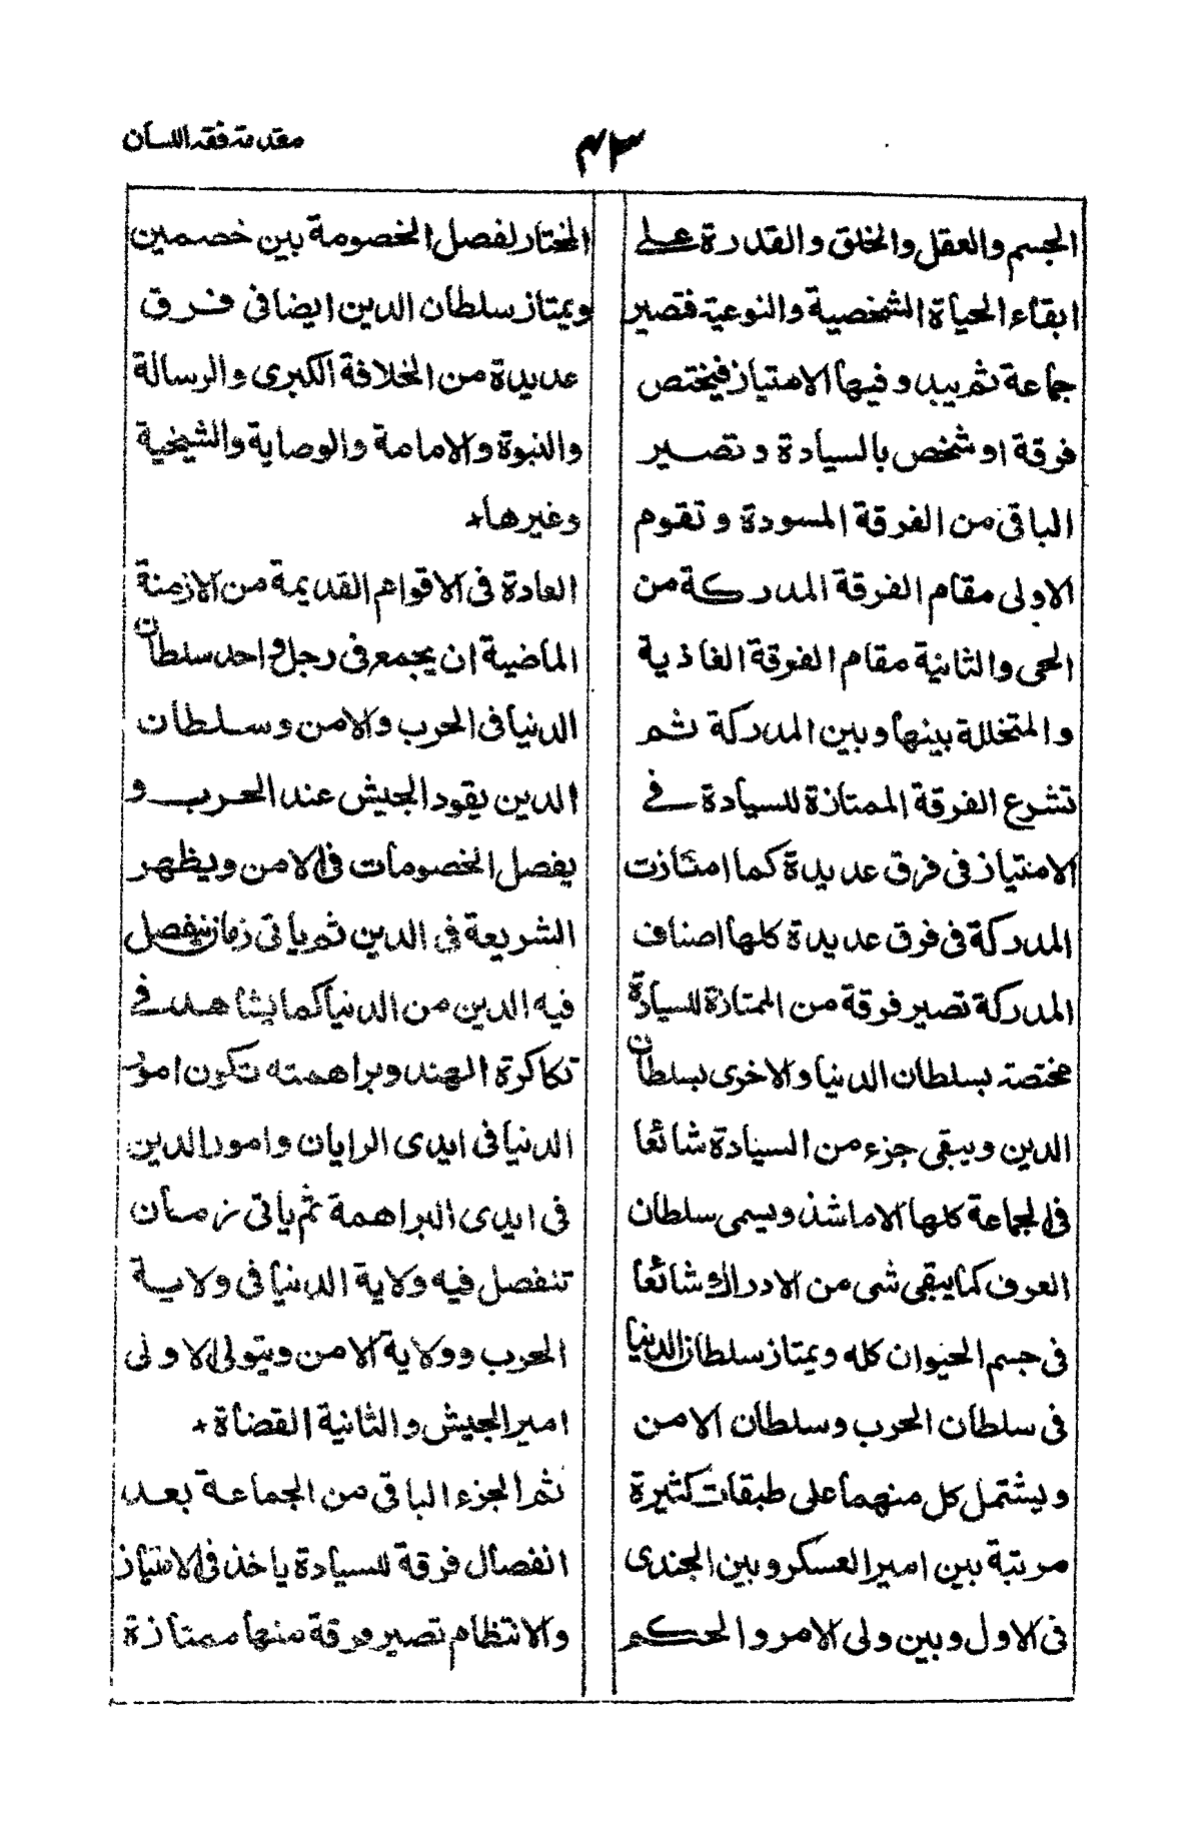 مقدمة فقه اللسان
٤٣
الجسم والعقل والخلق والقدرة على
ابقاء الحياة الشخصية والنوعية فتصير
جماعة ثم يبدو فيها الامتياز فيختص
فرقة او شخص بالسيادة و تصير
الباقى من الفرقة المسودة و تقوم
الاولى مقام الفرقة المدركة من
الحى والثانية مقام الفرقة الغاذية
والمتخللة بينها وبين المدركة ثم
تشرع الفرقة الممتازة للسيادة فى
الامتياز فى فرق عديدة كما امتازت
المدركة فى فرق عديدة كلها اصناف
المدركة تصير فرقة من الممتازة للسيادة
مختصة بسلطان الدنيا والاخرى بسلطان
الدين ويبقى جزء من السيادة شائعا
فى الجماعة كلها الا ما شذ ويسمى سلطان
العرف كما يبقى شى من الادراك شائعا
فى جسم الحيوان كله ويمتاز سلطان الدنيا
فى سلطان الحرب وسلطان الامن
ويشتمل كل منهما على طبقات كثيرة
مرتبة بين امير العسكر وبين الجندى
فى الاول وبين ولى الامر والحكم
المختار لفصل الخصومة بين خصمين
ويمتاز سلطان الدين ايضا فى فرق
عديدة من الخلافة الكبرى والرسالة
والنبوة والامامة والوصاية والشيخية
وغيرها+
العادة فى الاقوام القديمة من الازمنة
الماضية ان يجمع فى رجل واحد سلطان
الدنيا فى الحرب والامن وسلطان
الدين يقود الجيش عند الحرب و
يفصل الخصومات فى الامن ويظهر
الشريعة فى الدين ثم ياتى زمان ينفصل
فيه الدين من الدنيا كما يشاهد فى
تكاكرة الهند وبراهمته تكون امور
الدنيا فى ايدى الرايان وامور الدين
فى ايدى البراهمة ثم ياتى زمان
تنفصل فيه ولاية الدنيا فى ولاية
الحرب وولاية الامن ويتولى الاولى
امير الجيش والثانية القضاة+
ثم الجزء الباقى من الجماعة بعد
انفصال فرقة للسيادة ياخذ فى الامتياز
والانتظام تصير فرقة منها ممتازة